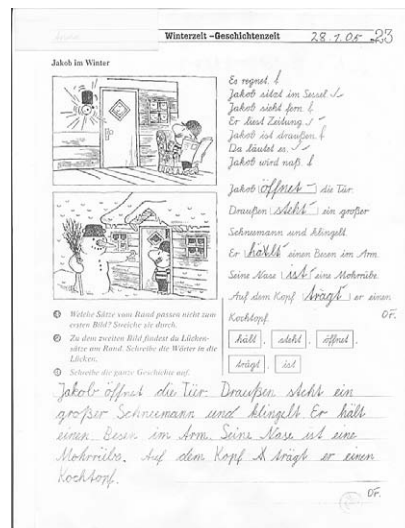 Winterzeit –Geschichtenzeit
28.1.05
23
Jakob im Winter
Es regnet.
Jakob sitzt im Sessel
Jakob sieht fern.
Er liest Zeitung.
Jakob ist draußen.
Da läutet es.
Jakob wird naß.
Jakob öffnet die Tür.
Draußen steht ein großer
Schneemann und klingelt.
Er hällt einen Besen im Arm.
Seine Nase ist eine Mohrrübe.
Auf dem Kopf trägt er einen
Kochtopf.
OF.
Welche Sätze vom Rand passen nicht zum
ersten Bild? Streiche sie durch.
Zu dem zweiten Bild findest du Lücken-
sätze am Rand. Schreibe die Wörter in die
Lücken.
Schreibe die ganze Geschichte auf.
hält steht öffnet
trägt ist
Jakob öffnet die Tür. Draußen steht ein
großer Schneemann und klingelt Er hält
einen Besen im Arm. Seine Nase ist eine
Mohrrübe. Auf dem Kopf trägt er einen
Kochtopf.
OF.